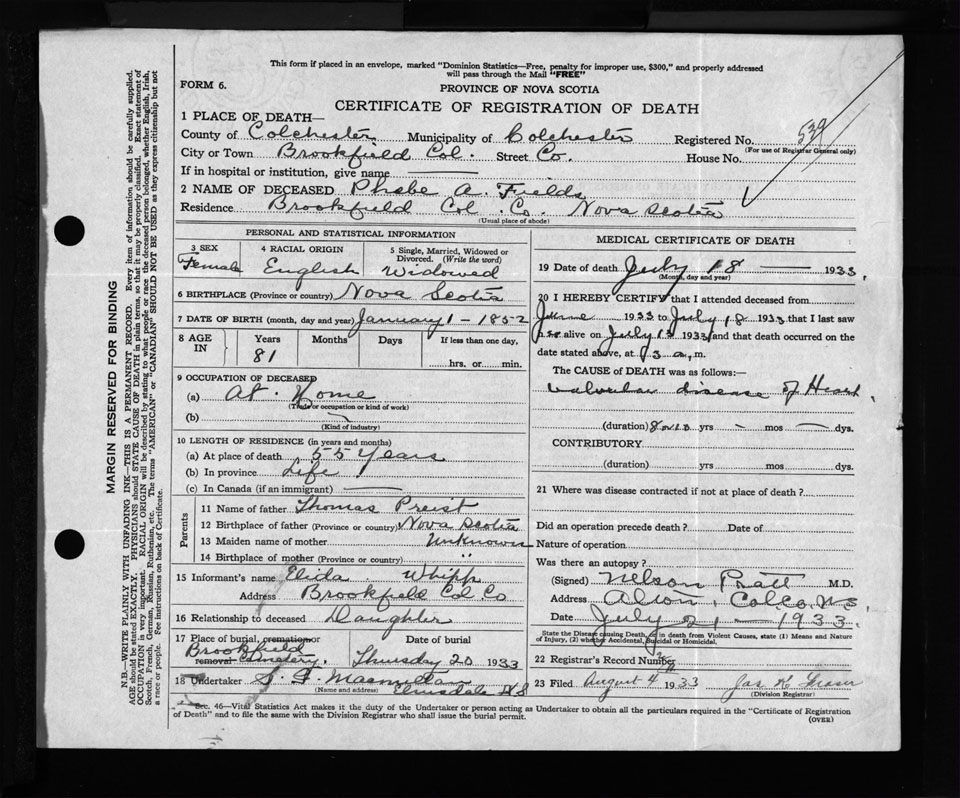 This form if placed in an envelope, marked "Dominion Statistics—Free, penalty for improper use, $300," and properly addressed
will pass through the Mail "FREE"
FORM 6.
PROVINCE OF NOVA SCOTIA
CERTIFICATE OF REGISTRATION OF DEATH
1 PLACE OF DEATH—
County of Colchester Municipality of Colchester Registered No. 539
(For use of Registrar General only)
City or Town Brookfield Col. Street Co. House No.
If in hospital or institution, give name
2 NAME OF DECEASED Phebe A. Fields
Residence Brookfield Col. Co. Nova Scotia
(Usual place of abode)
PERSONAL AND STATISTICAL INFORMATION
3 SEX 4 RACIAL ORIGIN 5 Single, Married, Widowed or
Divorced. (Write the word)
Female English Widowed
6 BIRTHPLACE (Province or country) Nova Scotia
7 DATE OF BIRTH (month, day and year) January 1 - 1852
8 AGE IN Years Months Days If less than one day,
81 hrs. or min.
9 OCCUPATION OF DECEASED
(a) At Home
(Trade or occupation or kind of work)
(b)
(Kind of industry)
10 LENGTH OF RESIDENCE (in years and months)
(a) At place of death 55 Years
(b) In province Life
(c) In Canada (if an immigrant)
Parents
11 Name of father Thomas Preist
12 Birthplace of father (Province or country) Nova Scotia
13 Maiden name of mother Unknown
14 Birthplace of mother (Province or country) "
15 Informant's name Elida Whipp
Address Brookfield Col Co
16 Relationship to deceased Daughter
17 Place of burial, cremation or Date of burial
Brookfield
removal Cemetery. Thursday 20 1933
18 Undertaker S. F.
(Name and address) Elmsdale N S
MEDICAL CERTIFICATE OF DEATH
19 Date of death July 18 — 1933.
(Month, day and year)
20 I HEREBY CERTIFY that I attended deceased from
June 1933 to July 18 1933 that I last saw
her alive on July 13 1933 and that death occurred on the
date stated above, at 3 a. m.
The CAUSE of DEATH was as follows:—
valvular disease of Heart.
(duration) yrs — mos — dys.
CONTRIBUTORY
(duration) yrs mos dys.
21 Where was disease contracted if not at place of death?
Did an operation precede death? Date of
Nature of operation
Was there an autopsy?
(Signed) Nelson Pratt M.D.
Address Alton, Col Co N.S.
Date July 21 — 1933.
State the Disease causing Death, or in death from Violent Causes, state (1) Means and Nature
of Injury, (2) whether Accidental, Suicidal or Homicidal.
22 Registrar's Record Number
23 Filed August 4 1933 Jas K. Fraser
(Division Registrar)
Sec. 46—Vital Statistics Act makes it the duty of the Undertaker or person acting as Undertaker to obtain all the particulars required in the "Certificate of Registration
of Death" and to file the same with the Division Registrar who shall issue the burial permit.
(OVER)
MARGIN RESERVED FOR BINDING
N.B.—WRITE PLAINLY WITH UNFADING INK—THIS IS A PERMANENT RECORD. Every item of information should be carefully supplied.
AGE should be stated EXACTLY. PHYSICIANS should STATE CAUSE OF DEATH in plain terms, so that it may be properly classified. Exact statement of
OCCUPATION is very important. RACIAL ORIGIN will be described by stating to what people or race the deceased person belonged, whether English, Irish,
Scotch, French, German, Russian, Ruthenian, etc. The terms "AMERICAN" or "CANADIAN" SHOULD NOT BE USED as they express citizenship but not
a race or people. Fee instructions on back of Certificate.